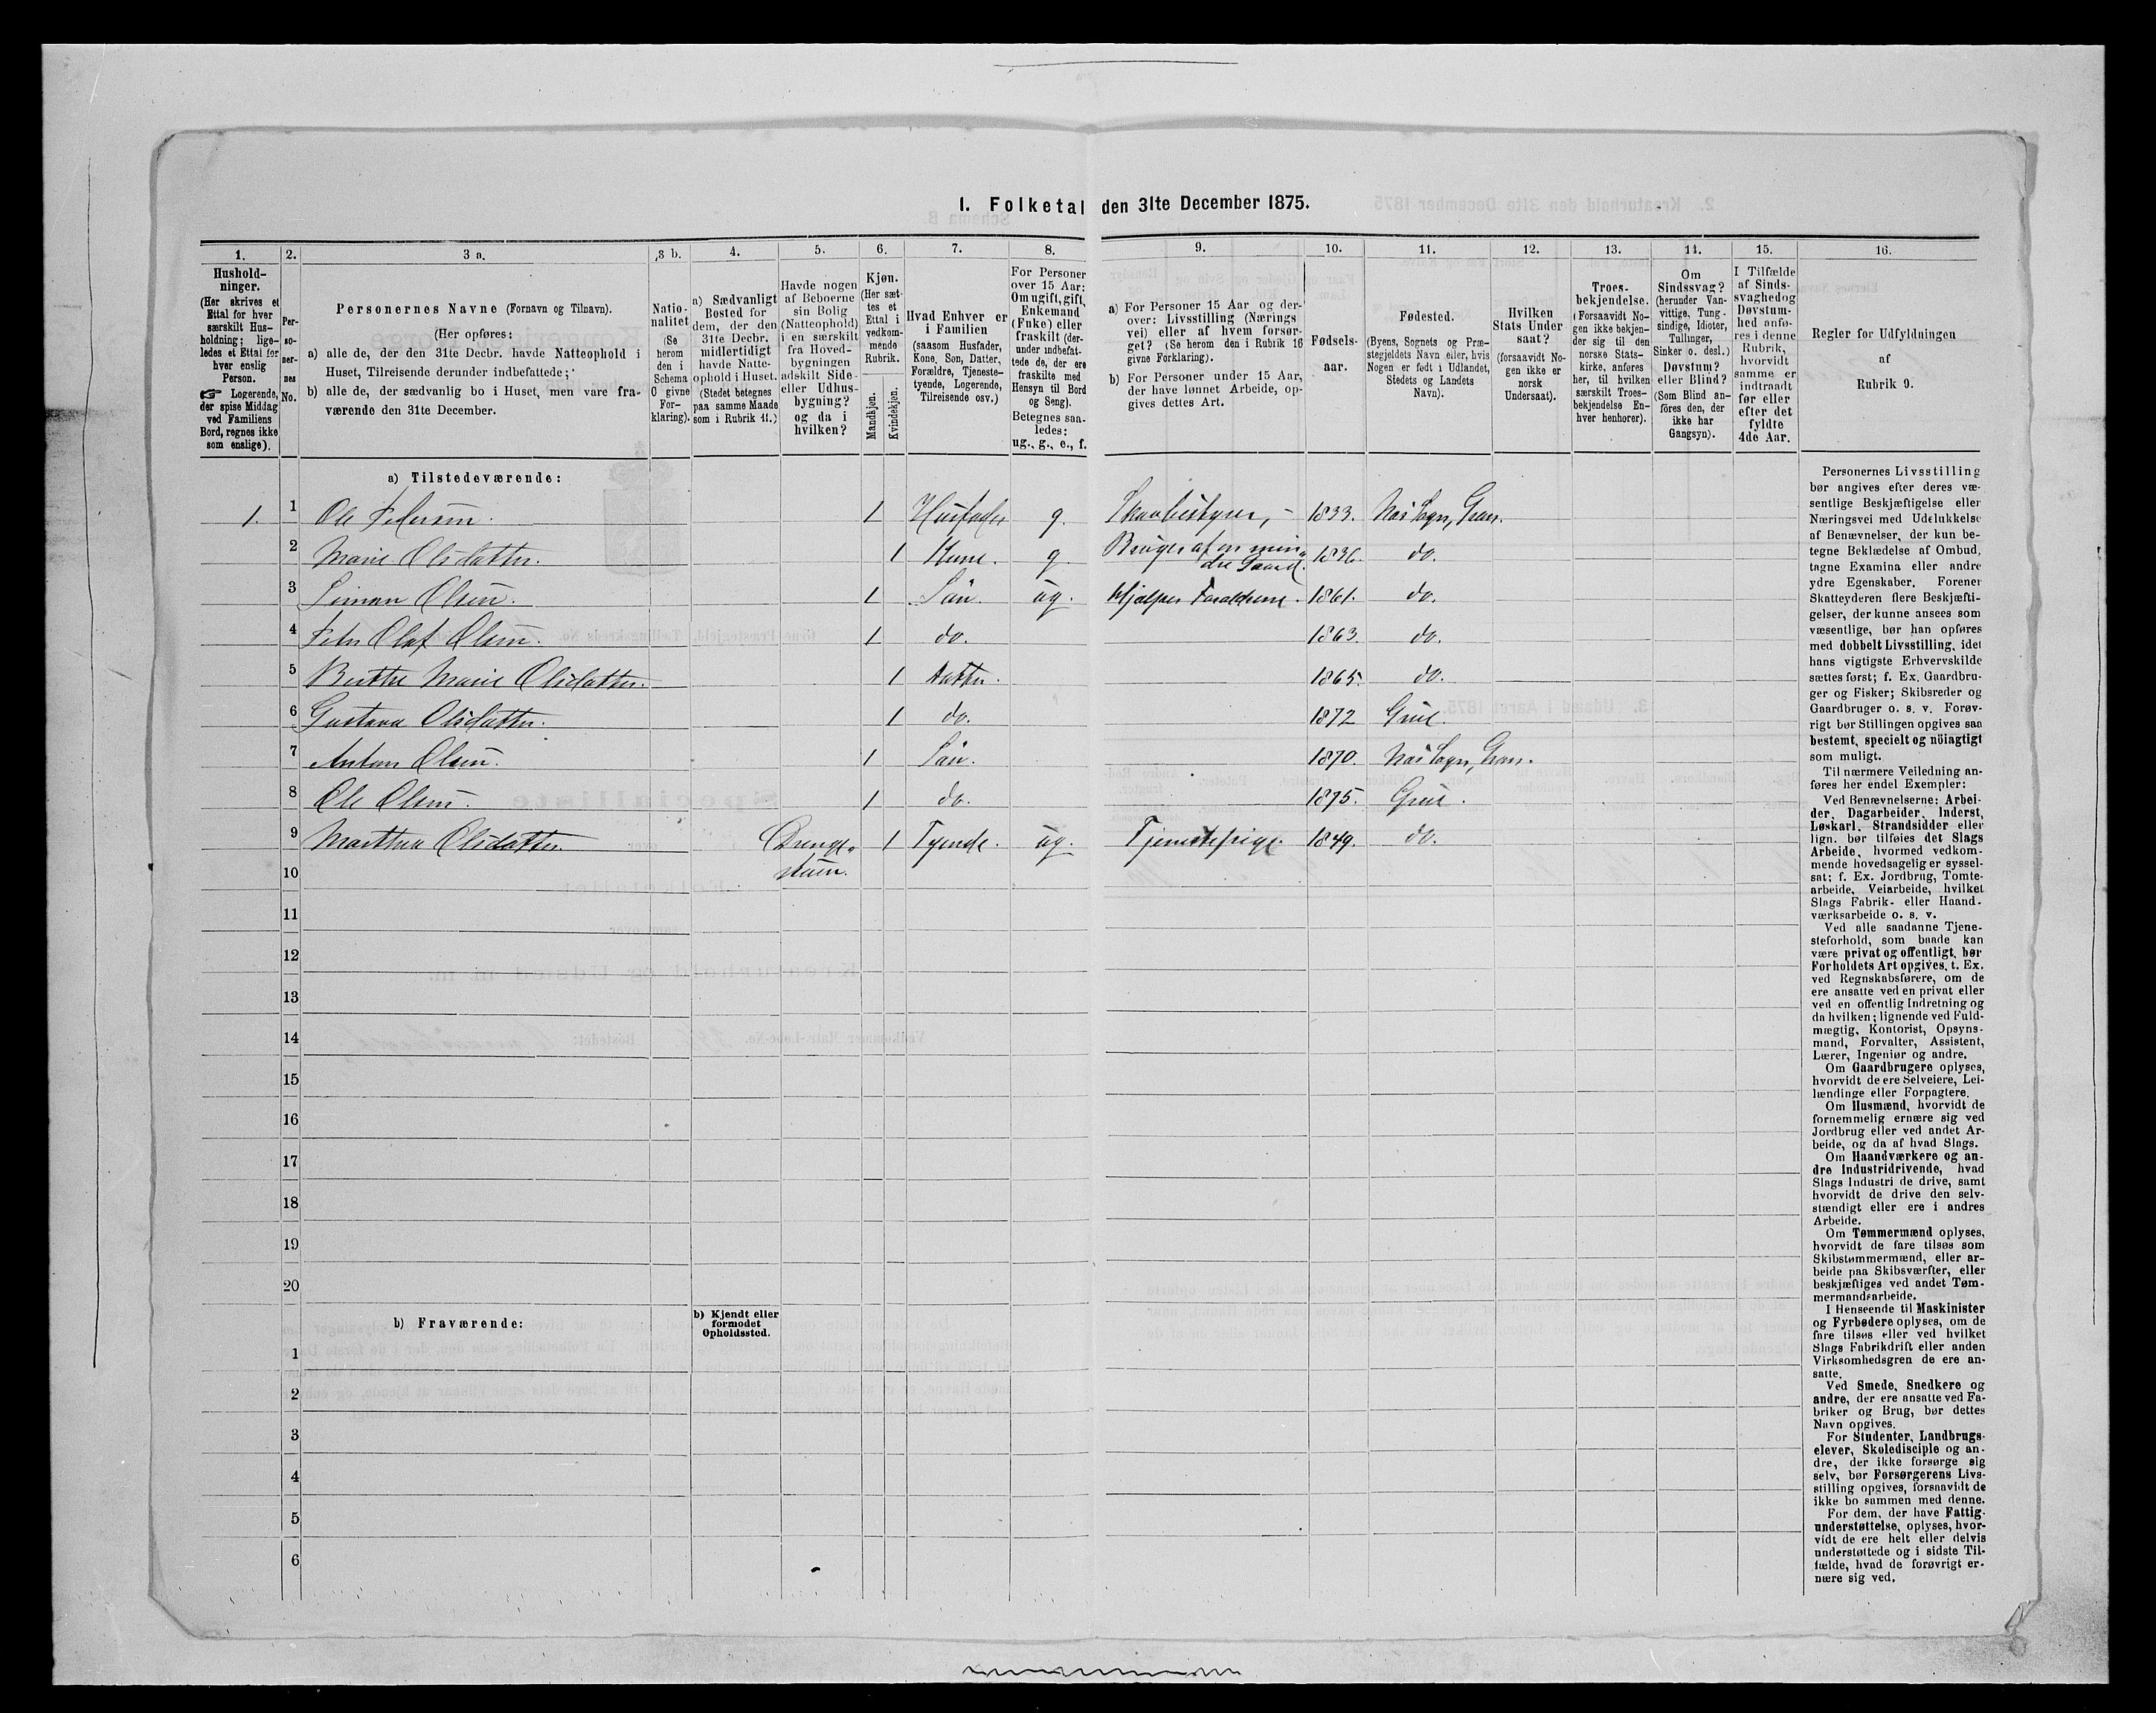 1. Folketal den 31te December 1875.
1.
Hushold-
ninger.
(Her skrives et
Ettal for hver
særskilt Hus-
holdning; lige-
ledes et Ettal for
hver enslig
Person.
☞ Logerende,
der spise Middag
ved Familiens
Bord, regnes ikke
som enslige).
2.
Per-
so-
ner-
nes
No.
3 a.
Personernes Navne (Fornavn og Tilnavn).
(Her opføres:
a) alle de, der den 31te Decbr. havde Natteophold i
Huset, Tilreisende derunder indbefattede;
b) alle de, der sædvanlig bo i Huset, men vare fra-
værende den 31te December.
3 b.
Natio-
nalitet
(Se
herom
den i
Schema
O givne
For-
klaring).
4.
a) Sædvanligt
Bosted for
dem, der den
31te Decbr.
midlertidigt
havde Natte-
ophold i Huset.
(Stedet betegnes
paa samme Maade
som i Rubrik 11.)
5.
Havde nogen
af Beboerne
sin Bolig
(Natteophold)
i en særskilt
fra Hoved-
bygningen
adskilt Side-
eller Udhus-
bygning?
og da i
hvilken?
6.
Kjøn.
(Her sæt-
tes et
Ettal i
vedkom-
mende
Rubrik.
Mandkjøn.
Kvindekjøn.
7.
Hvad Enhver er
i Familien
(saasom Husfader,
Kone, Søn, Datter,
Forældre, Tjeneste-
tyende, Logerende,
Tilreisende osv.)
8.
For Personer
over 15 Aar:
Om ugift, gift,
Enkemand
(Enke) eller
fraskilt (der-
under indbefat-
tede de, der ere
fraskilte med
Hensyn til Bord
og Seng).
Betegnes saa-
ledes:
ug., g., e., f.
9.
a) For Personer 15 Aar og der-
over: Livsstilling (Nærings-
vei) eller af hvem forsør-
get? (Se herom den i Rubrik 16
givne Forklaring).
b) For Personer under 15 Aar,
der have lønnet Arbeide, op-
gives dettes Art.
10.
Fødsels-
aar.
11.
Fødested.
(Byens, Sognets og Præ-
stegjeldets Navn eller, hvis
Nogen er født i Udlandet,
Stedets og Landets
Navn).
12.
Hvilken
Stats Under
saat?
(forsaavidt No-
gen ikke er
norsk
Undersaat).
13.
Troes-
bekjendelse.
(Forsaavidt No-
gen ikke bekjen-
der sig til den
norske Stats-
kirke, anføres
her, til hvilken
særskilt Troes-
bekjendelse En-
hver henhører).
14.
Om
Sindssvag?
(herunder Van-
vittige, Tung-
sindige, Idioter,
Tullinger,
Sinker o. desl.)
Døvstum?
eller Blind?
(Som Blind an-
føres den, der
ikke har
Gangsyn).
15.
I Tilfælde
af Sinds-
svaghed og
Døvstum-
hed anfø-
res i denne
Rubrik,
hvorvidt
samme er
indtraadt
før eller
efter det
fyldte
4de Aar.
16.
Regler for Udfyldningen
af
Rubrik 9.
a) Tilstedeværende:
1. 1 Ole Pedersen. 1 Husfader g. Skovbestyrer, - 1833. Næs Sogn, Gran.
2 Marie Olsdatter. 1 Kone. g. Bruger af en min- 1836. do.
dre Gaard.
3 Simen Olsen. 1 Sön. ug. Hjælper Forældrene. 1861. do.
4 Peter Olaf Olsen. 1 do. 1863. do.
5 Berthe Marie Olsdatter. 1 Datter. 1865. do.
6 Gustava Olsdatter. 1 do. 1872 Grue.
7 Anton Olsen. 1 Sön. 1870. Næs Sogn, Gran.
8 Ole Olsen. 1 do. 1875. Grue.
9 Marthea Olsdatter. Drenge- 1 Tyende. ug. Tjenestepige. 1849. do.
10 stuen.
11
12
13
14
15
16
17
18
19
20
b) Fraværende:
b) Kjendt eller
formodet
Opholdssted.
1
2
3
4
5
6
Personernes Livsstilling
bør angives efter deres væ-
sentlige Beskjæftigelse eller
Næringsvei med Udelukkelse
af Benævnelser, der kun be-
tegne Beklædelse af Ombud,
tagne Examina eller andre
ydre Egenskaber. Forener
Skatteyderen flere Beskjæfti-
gelser, der kunne ansees som
væsentlige, bør han opføres
med dobbelt Livsstilling, idet
hans vigtigste Erhvervskilde
sættes først; f. Ex. Gaardbru-
ger og Fisker; Skibsreder og
Gaardbruger o. s. v. Forøv-
rigt bør Stillingen opgives saa
bestemt, specielt og nöiagtigt
som muligt.
Til nærmere Veiledning an-
føres her endel Exempler:
Ved Benævnelserne: Arbei-
der, Dagarbeider, Inderst,
Løskarl, Strandsidder eller
lign. bør tilføies det Slags
Arbeide, hvormed vedkom-
mende hovedsagelig er syssel-
sat; f. Ex. Jordbrug, Tomte-
arbeide, Veiarbeide, hvilket
Slags Fabrik- eller Haand-
værksarbeide o. s. v.
Ved alle saadanne Tjene-
steforhold, som baade kan
være privat og offentligt, bør
Forholdets Art opgives, t. Ex.
ved Regnskabsførere, om de
ere ansatte ved en privat eller
ved en offentlig Indretning og
da hvilken; lignende ved Fuld-
mægtig, Kontorist, Opsyns-
mand, Forvalter, Assistent,
Lærer, Ingeniør og andre.
Om Gaardbrugere oplyses,
hvorvidt de ere Selveiere, Lei-
lændinge eller Forpagtere.
Om Husmænd, hvorvidt de
fornemmelig ernære sig ved
Jordbrug eller ved andet Ar-
beide, og da af hvad Slags.
Om Haandværkere og an-
dre Industridrivende, hvad
Slags Industri de drive, samt
hvorvidt de drive den selv-
stændigt eller ere i andres
Arbeide.
Om Tømmermænd oplyses,
hvorvidt de fare tilsøs som
Skibstømmermænd, eller ar-
beide paa Skibsværfter, eller
beskjæftiges ved andet Tøm-
mermandsarbeide.
I Henseende til Maskinister
og Fyrbødere oplyses, om de
fare tilsøs eller ved hvilket
Slags Fabrikdrift eller anden
Virksomhedsgren de ere an-
satte.
Ved Smede, Snedkere og
andre, der ere ansatte ved Fa-
briker og Brug, bør dettes
Navn opgives.
For Studenter, Landbrugs-
elever, Skoledisciple og an-
dre, der ikke forsørge sig
selv, bør Forsørgerens Livs-
stilling opgives, forsaavidt de
ikke bo sammen med denne.
For dem, der have Fattig-
understøttelse, oplyses, hvor-
vidt de ere helt eller delvis
understøttede og i sidste Til-
fælde, hvad de forøvrigt er-
nære sig ved.